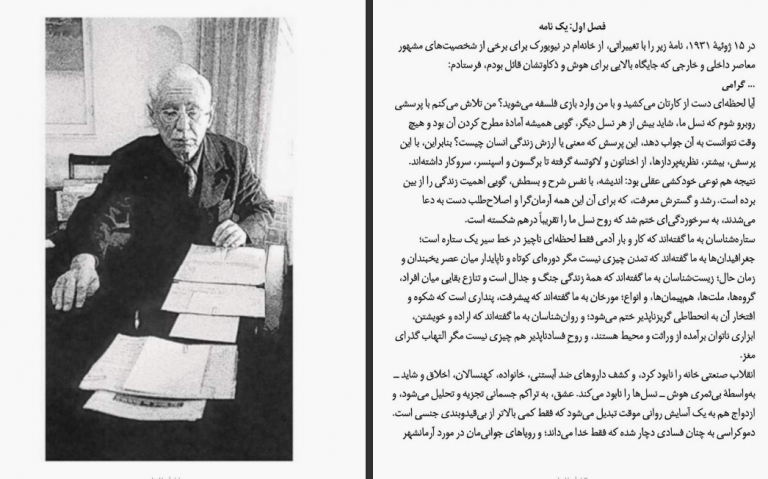 فصل اول: یک نامه
در ۱۵ ژوئیهٔ ۱۹۳۱، نامهٔ زیر را با تغییراتی، از خانه‌ام در نیویورک برای برخی از شخصیت‌های مشهور
معاصر داخلی و خارجی که جایگاه بالایی برای هوش و ذکاوتشان قائل بودم، فرستادم:
... گرامی
آیا لحظه‌ای دست از کارتان می‌کشید و با من وارد بازی فلسفه می‌شوید؟ من تلاش می‌کنم با پرسشی
روبرو شوم که نسل ما، شاید بیش از هر نسل دیگر، گویی همیشه آمادهٔ مطرح کردن آن بود و هیچ
وقت نتوانست به آن جواب دهد، این پرسش که معنی یا ارزش زندگی انسان چیست؟ بنابراین، با این
پرسش، بیشتر، نظریه‌پردازها، از اخناتون و لائوتسه گرفته تا برگسون و اسپنسر، سروکار داشته‌اند.
نتیجه هم نوعی خودکشی عقلی بود: اندیشه، با نفسِ شرح و بسطش، گویی اهمیت زندگی را از بین
برده است. رشد و گسترش معرفت، که برای آن این همه آرمان‌گرا و اصلاح‌طلب دست به دعا
می‌شدند، به سرخوردگی‌ای ختم شد که روح نسل ما را تقریباً درهم شکسته است.
ستاره‌شناسان به ما گفته‌اند که کار و بار آدمی فقط لحظه‌ای ناچیز در خط سیر یک ستاره است؛
جغرافیدان‌ها به ما گفته‌اند که تمدن چیزی نیست مگر دوره‌ای کوتاه و ناپایدار میان عصر یخبندان و
زمان حال؛ زیست‌شناسان به ما گفته‌اند که همهٔ زندگی جنگ و جدال است و تنازع بقایی میان افراد،
گروه‌ها، ملت‌ها، هم‌پیمان‌ها، و انواع؛ مورخان به ما گفته‌اند که پیشرفت، پنداری است که شکوه و
افتخار آن به انحطاطی گریزناپذیر ختم می‌شود؛ و روان‌شناسان به ما گفته‌اند که اراده و خویشتن،
ابزاری ناتوان برآمده از وراثت و محیط هستند، و روحِ فسادناپذیر هم چیزی نیست مگر التهاب گذرای
مغز.
انقلاب صنعتی خانه را نابود کرد، و کشف داروهای ضد آبستنی، خانواده، کهنسالان، اخلاق و شاید ــ
به‌واسطهٔ بی‌ثمری هوش ــ نسل‌ها را نابود می‌کند. عشق، به تراکم جسمانی تجزیه و تحلیل می‌شود، و
ازدواج هم به یک آسایش روانی موقت تبدیل می‌شود که فقط کمی بالاتر از بی‌قیدوبندی جنسی است.
دموکراسی به چنان فسادی دچار شده که فقط خدا می‌داند؛ و رویاهای جوانی‌مان در مورد آرمانشهر